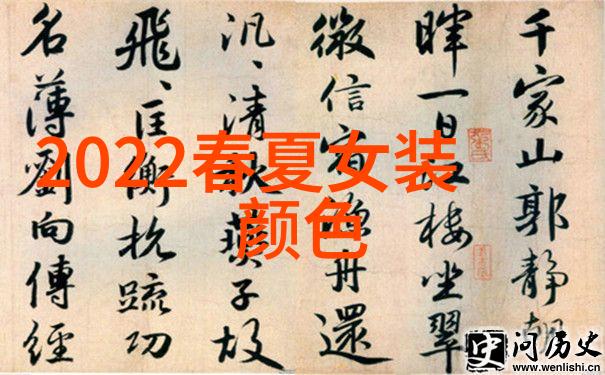 千家山郭靜朝
暉一日江樓坐翠
微信宿漁舟還
汎〻清秋燕子故
飛〻匡衡抗疏功
名薄劉向傳經
2022春夏女装
颜色
史 问历史
www.wenlishi.cn